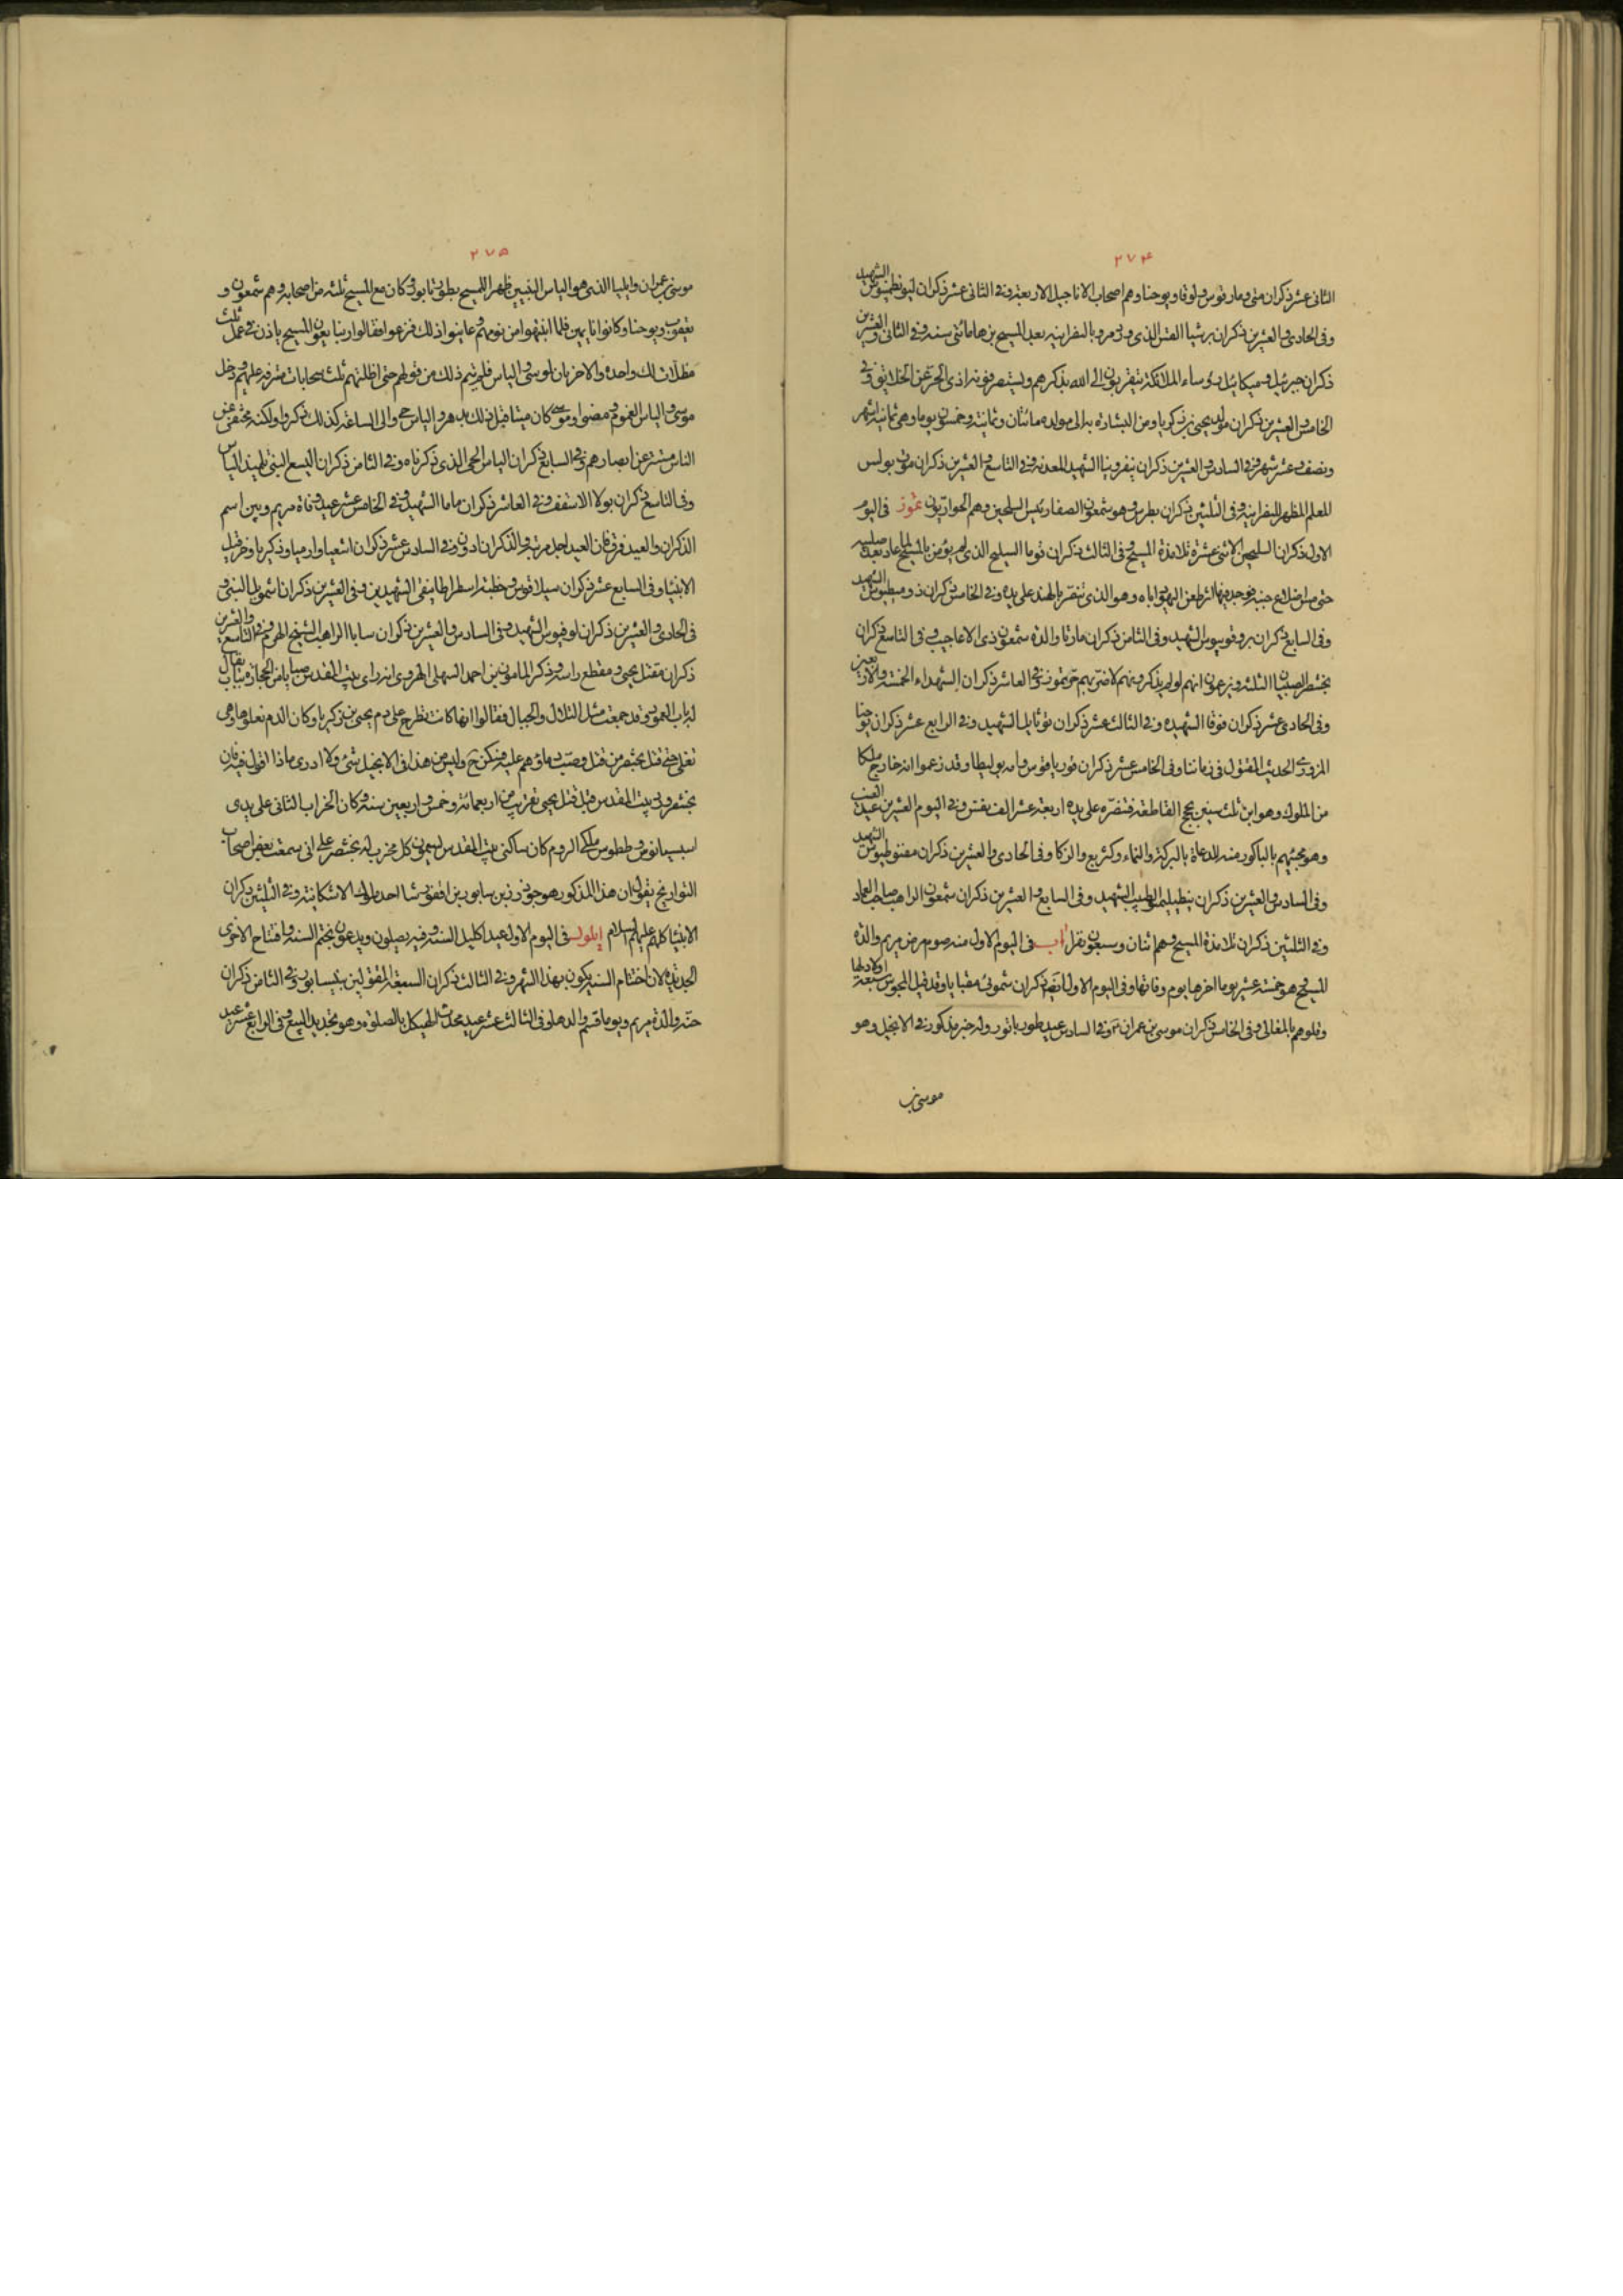 ٢٧۴
الثانى عشر ذكران متى ومارقوس ولوقا ويوحنا وهم اصحاب الاناجيل الاربعة وفى الثانى عشر ذكران ليونطيوس الشهيد
وفى الحادى والعشرين ذكران برشيا القس الذى ورد مرو بالنصرانية بعد المسيح بزها مائتى سنة وفى الثانى والعشرين
ذكران جبرئيل وميكائيل رؤساء الملائكة يتقربون الى الله بذكرهم ويستصرفونه اذى الحر عن الخلايق وفى
الخامس والعشرين ذكران مولد يحيى بن زكريا ومن البشارة به الى مولده مائتان وثمانية وخمسون يوما وهى ثمانية اشهر
ونصف وعشر شهر وفى السادس والعشرين ذكران نيفرونيا الشهيد المعدنة وفى التاسع والعشرين ذكران موت بولس
المعلم المظهر للنصرانية وفى الثلثين ذكران بطرس وهو شمعون الصفا رئيس السلحين وهم الحواريون تموز فى اليوم
الاول ذكران السليحين الاثنى عشرة تلامذة المسيح وفى الثالث ذكران توما السليح الذى لم يؤمن بالمسيح لما عاد بعد صلبه
حتى مس اضلاع جنبه فوجد فيها اثر طعن اليهود اياه وهو الذى تنصر الهند على يده وفى الخامس ذكران دوميطيوس الشهيد
وفى السابع ذكران بروقوبيوس الشهيد وفى الثامن ذكران مارتا والدة شمعون ذى الاعاجيب وفى التاسع ذكران
بختنصر الصبيان الثلثة ويزعمون انهم لو لم يذكروهم لاضر بهم حر تموز وفى العاشر ذكران الشهداء الخمسة والاربعين
وفى الحادى عشر ذكران فوقا الشهيدة وفى الثالث عشر ذكران ثوثايلا الشهيد وفى الرابع عشر ذكران يوحنا
المروزى الحديث المقتول فى زماننا وفى الخامس عشر ذكران قورياقوس وامه يوليطا وقد زعموا انه حاج ملكا
من الملوك وهو ابن ثلث سنين بحجج القاطعة فتنصر على يده اربعة عشر الف نفس وفى اليوم العشرين عيد العنب
وهو مجيئهم بالباكورة منه للدعاة بالبركة والنماء وكثر ريع والزكا وفى الحادى والعشرين ذكران مفنوطيوس الشهيد
وفى السادس والعشرين ذكران بنطيليمون الطبيب الشهيد وفى السابع والعشرين ذكران شمعون الراهب صاحب العماد
وفى الثلثين ذكران تلامذة المسيح وهم اثنان وسبعون نفرا آب فى اليوم الاول منه صوم مرض مريم والدة
المسيح وهو خمسة عشر يوما اخرها يوم وفاتها وفى اليوم الاول ايضا ذكران شمونى مقبايا وقد قتل المجوس اولادها سبعة
وقلوهم بالمغالى وفى الخامس ذكران موسى بن عمران عم وفى السادس عيد طور تابور وله خبر مذكور فى الانجيل وهو
موسى بن
٢٧۵
موسى بن عمران وايليا الذى هو الياس النبيين ظهرا للمسيح بطور تابور وكان مع المسيح ثلثة من اصحابه وهم شمعون و
يعقوب ويوحنا وكانوا نايمين فلما انتبهوا من نومهم وعاينوا ذلك فزعوا فقالوا ربنا يعنون المسيح ياذن فى عمل ثلث
مظلات لك واحدة والاخريان لموسى والياس فلم يتم ذلك من قولهم حتى اظلتهم ثلث سحابات مشرفة عليهم ودخل
موسى والياس الغموم ومضوا وموسى كان ميتا قبل ذلك بدهر والياس حى والى الساعة كذلك ذكروا ولكنه مختفى عن
الناس مستتر عن ابصارهم وفى السابع ذكران الياس الحى الذى ذكرناه وفى الثامن ذكران اليسع النبى تلميذ الياس
وفى التاسع ذكران بولا الاسقف وفى العاشر ذكران ماما الشهيد وفى الخامس عشر عيد وفاة مريم وبين اسم
الذكران والعيد فرق فان العيد اجل مرتبة والذكران ادون وفى السادس عشر ذكران اشعيا وارميا وذكريا وحزقيل
الانبيا وفى السابع عشر ذكران سيلاقوس وخطيته اسطراطانيقى الشهيدين وفى العشرين ذكران اشمويل النبى و
فى الحادى والعشرين ذكران لوفيوس الشهيد وفى السادس والعشرين ذكران سابا الراهب الشيخ الهرم وفى التاسع والعشرين
ذكران مقتل يحيى ومقطع راسه وذكر المامون بن احمد السلمى الهروى انه راى ببيت المقدس صبايا من الحجارة بباب يقال
له باب العمود وقد جمعت مثل التلال والجبال فقالوا انها كانت تطرح على دم يحيى بن زكريا وكان الدم يعلوها وهى
تغلى حتى قتل بختنصر من قتل وصب دماؤهم عليه فسكن ح وليس من هذا فى الانجيل شئ ولا ادرى ماذا اقول فيه فان
بختنصر ورد بيت المقدس قبل قتل يحيى بقريب من اربعمائة وخمس واربعين سنة وكان الخراب الثانى على يدى
اسبسيانوس وططوس ملكى الروم كان ساكنى بيت المقدس يسمون كل مخرب له بختنصر على انى سمعت بعض اصحاب
التواريخ يقول ان هذا المذكور هو جوذرز بن سابور بن افقورشا احد ملوك الاشكانية وفى الثلثين ذكران
الانبيا كلهم عليهم السلام ايلول فى اليوم الاول عيد اكليل السنة وفيه يصلون ويدعون بختم السنة وافتتاح الاخرى
الجديدة لان اختتام السنة يكون بهذا الشهر وفى الثالث ذكران السبعة المقتولين بنيسابور وفى الثامن ذكران
حنه والدة مريم ويوياقيم والدها وفى الثالث عشر عيد محدث الهيكل بالصلوة وهو تجديد البيع وفى الرابع عشر عيد